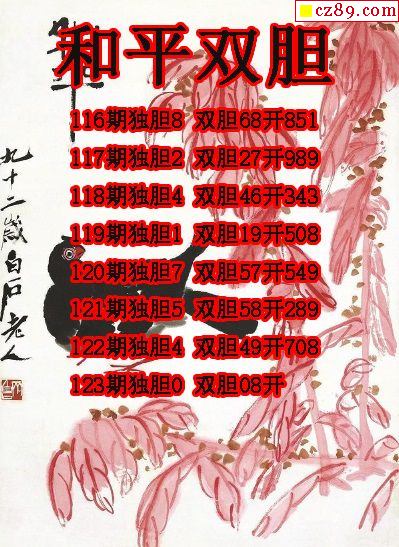 cz89.com
和平双胆
116期独胆8 双胆68开851
117期独胆2 双胆27开989
118期独胆4 双胆46开343
119期独胆1 双胆19开508
120期独胆7 双胆57开549
121期独胆5 双胆58开289
122期独胆4 双胆49开708
123期独胆0 双胆08开
九十二岁白石老人